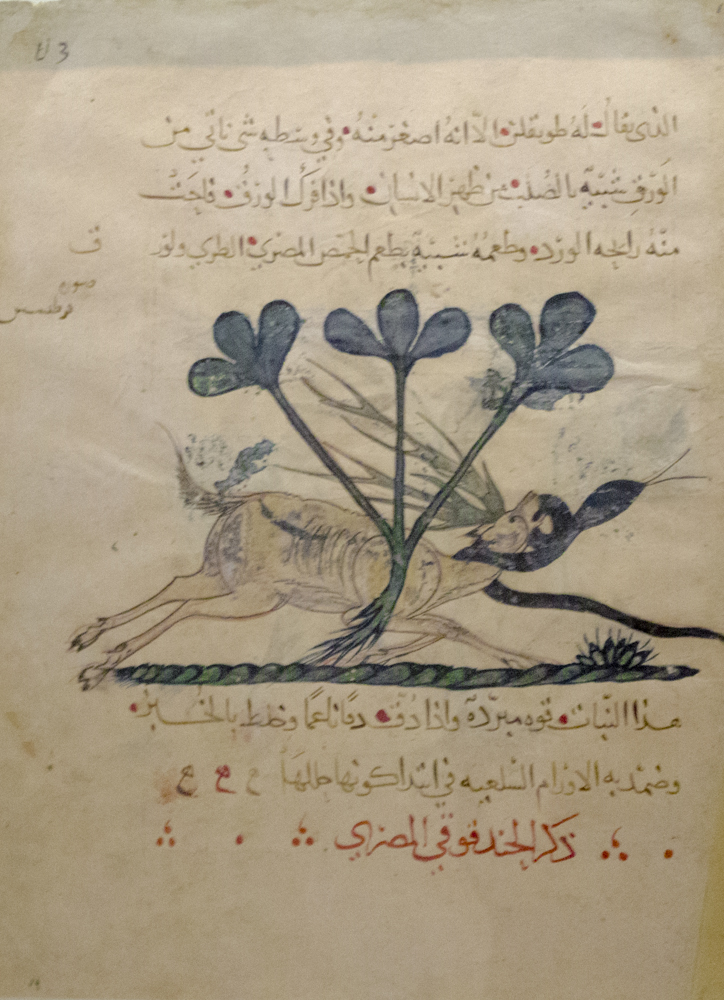 الذى يقال له طويقلن الا انه اصغر منه وفي وسطه شى ناتي من
الورق شبيه بالصلب من ظهر الانسان واذا فرك الورق فاحت
منه رايحه الورد وطعمه شبيه بطعم الحمص المصري الطري ولور
ف
صوره
هذا النبات قوه مبرده واذا دق دقا ناعما وخلط بالخبز
وضمد به الاورام البلغميه في ابتدا كونها حللها
ذكر الحندقوقي المصري